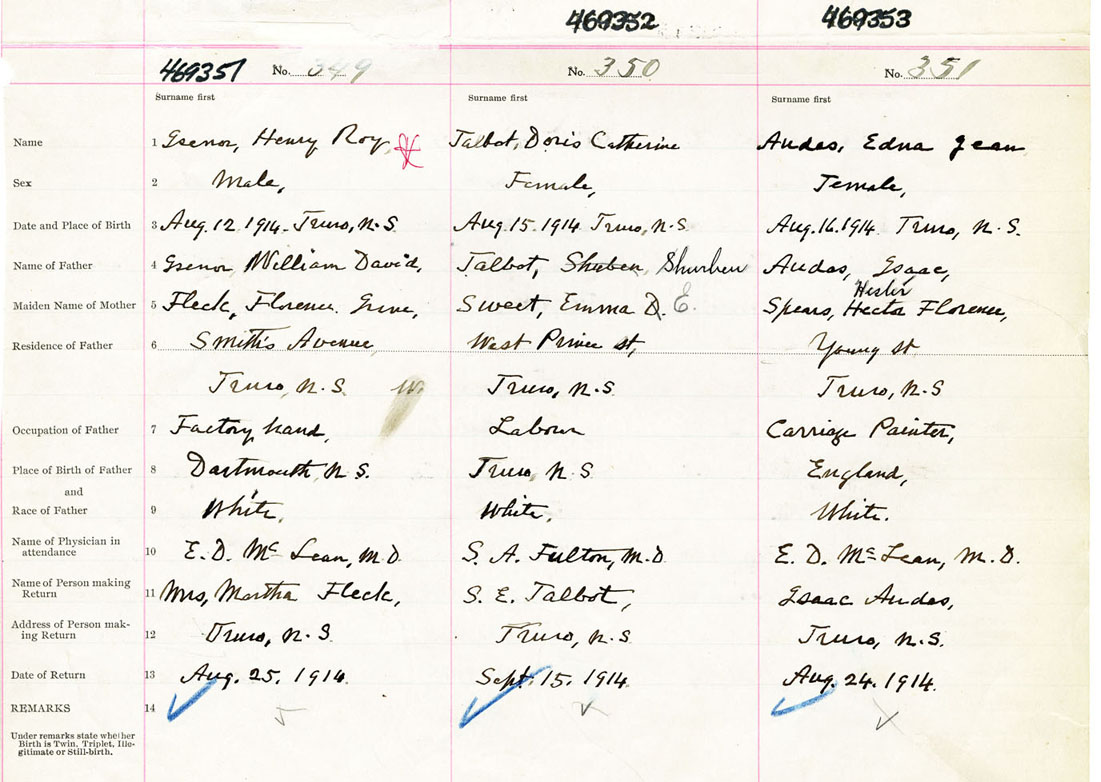 469352 469353
469351 No. 349 No. 350 No. 351
Surname first Surname first Surname first
Name 1 Isenor, Henry Roy, Talbot, Doris Catherine Audas, Edna Jean
Sex 2 Male, Female, Female,
Date and Place of Birth 3 Aug. 12 1914. Truro, N.S. Aug. 15. 1914 Truro, N.S. Aug. 16. 1914 Truro, N.S.
Name of Father 4 Isenor, William David, Talbot, Shurben Audas, Isaac,
Hester
Maiden Name of Mother 5 Fleck, Florence Sweet, Emma D. E. Spears, Hector Florence,
Residence of Father 6 Smith's Avenue, West Prince st, Young st
Truro, N.S. Truro, N.S Truro, N.S
Occupation of Father 7 Factory hand, Labour Carriage Painter,
Place of Birth of Father 8 Dartmouth, N.S. Truro, N.S England,
and
Race of Father 9 White, White, White.
Name of Physician in
attendance 10 E. D. McLean, M.D. S. A. Fulton, M.D. E. D. McLean, M.D.
Name of Person making
Return 11 Mrs, Martha Fleck, S. E. Talbot, Isaac Audas,
Address of Person mak-
ing Return 12 Truro, N.S. Truro, N.S Truro, N.S.
Date of Return 13 Aug. 25. 1914. Sept. 15. 1914 Aug. 24. 1914.
REMARKS 14
Under remarks state whether
Birth is Twin. Triplet, Ille-
gitimate or Still-birth.